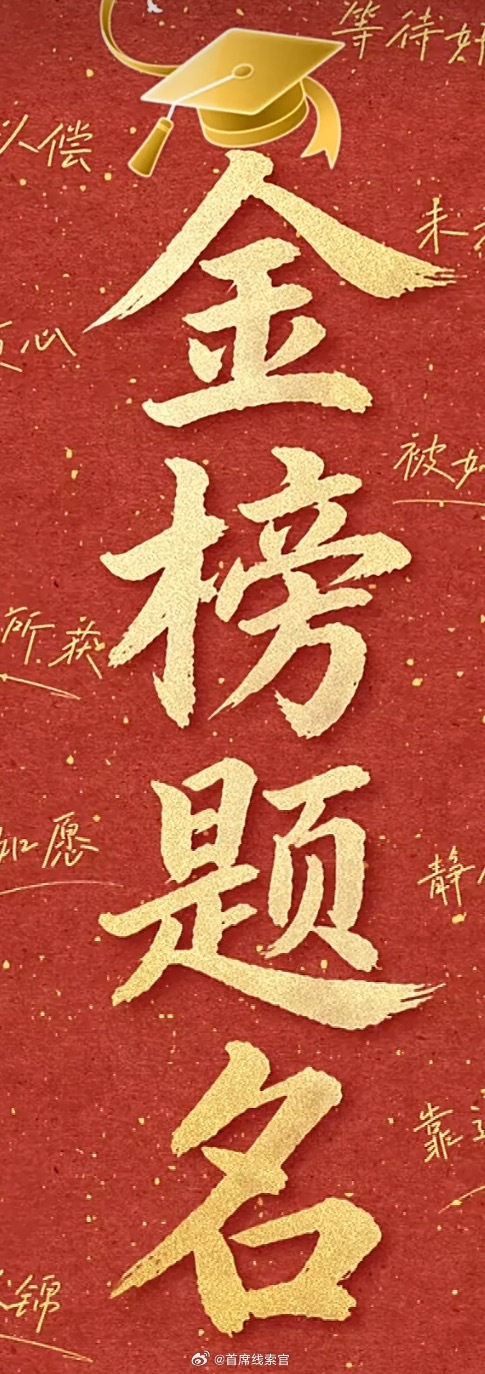 等待
以偿
金榜题名
心
被如
所获
如愿
静
靠
锦
@首席线索官